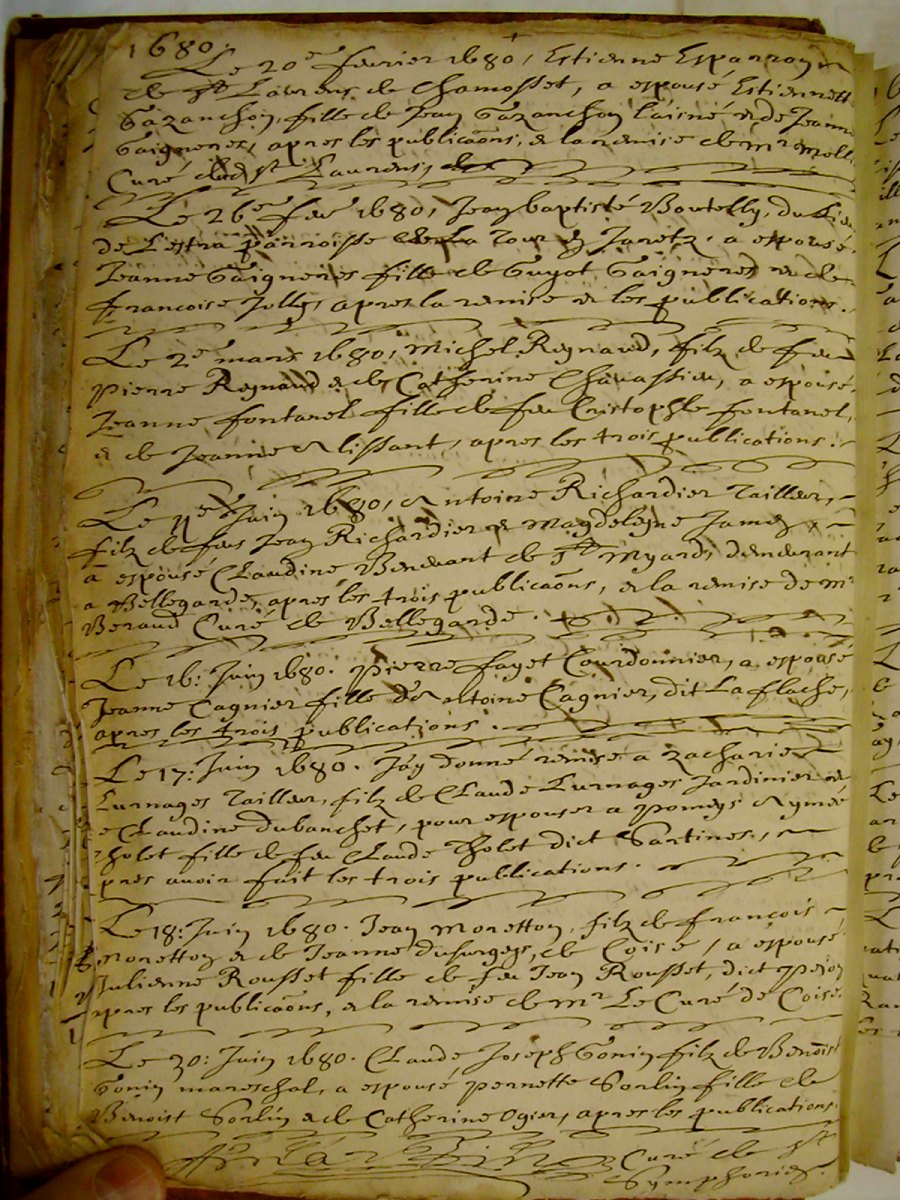 1680.
Le 20e feurier 1680, Estienne Esparron
de St Laurens de Chamosset, a espousé Estiennette
Gazanchon, fille de Jean Gazanchon laisné & de Jeanne
Gaigneres, apres les publicaons, & la remise de Mr
Curé dud St Laurens,
Le 26e feu 1680, Jean baptiste Boutelly, du lieu
de Lestra parroisse de la Tour en Jaretz, a espousé
Jeanne Gaigneres fille de Guyot Gaigneres & de
francoise Jolly, apres la remise & les publications.
Le 2e mars 1680, Michel Reynaud, filz de feu
Pierre Reynaud & de Catherine Chauassieu, a espousé
Jeanne fontanel fille de feu Cristophle fontanel,
& de Jeanne lissant, apres les trois publications.
Le Juin 1680, Antoine Richardier Tailleur,
filz de feu Jean Richardier & Magdeleyne James,
a espousé Claudine Beneuant de St Myard, demeurant
a Bellegarde, apres les trois publicaons, & la remise de Mr
Beraud Curé de Bellegarde.
Le 16: Juin 1680. Pierre fayet Courdonnier, a espousé
Jeanne Cagnier fille dAntoine Cagnier, dit La flache,
apres les trois publications.
Le 17: Juin 1680. Jay donné remise a Zacharie
Lurnages Tailleur, filz de Claude Lurnages Jardinier &
de Claudine dubanchet, pour espouser a Pomeys Aymée
Tholet fille de feu Claude Tholet dict Sartines,
pres auoir fait les trois publications.
Le 18: Juin 1680. Jean Moretton, filz de francois
Moretton & de Jeanne dusurgeys, de Coise, a espousé
Julienne Rousset fille de feu Jean Rousset, dict
apres les publicaons, & la remise de Mr Le Curé de Coise.
Le 30: Juin 1680. Claude Joseph Gonin filz de Benoist
Gonin mareschal, a espousé Pernette Sorlin fille de
Benoist Sorlin & de Catherine Ogier, apres les publications.
Curé de St
Symphorien.